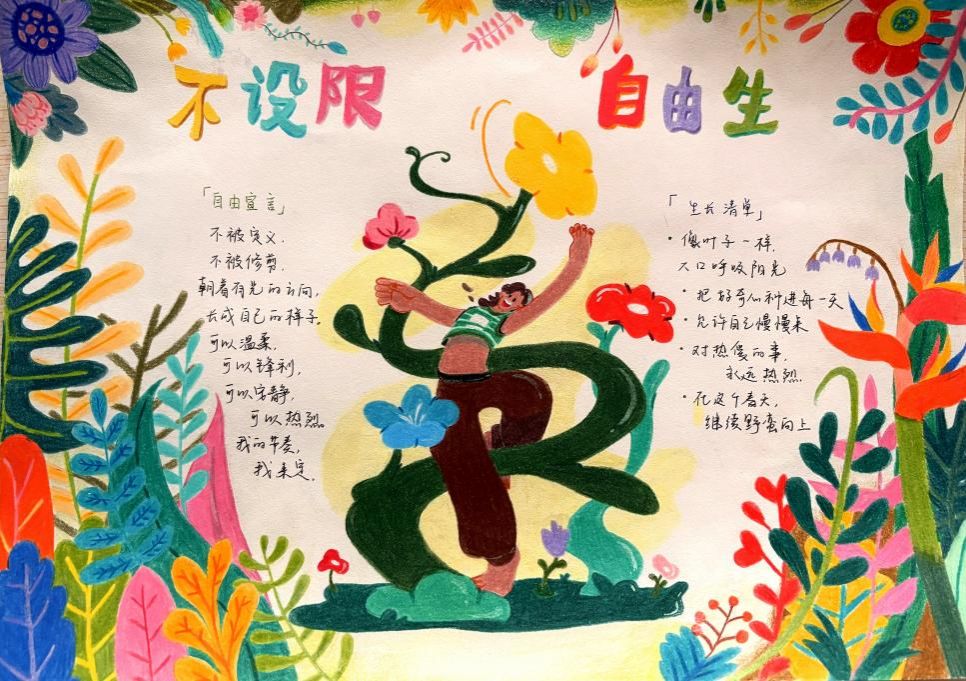 不设限
自由生
「自由宣言」
不被定义.
不被修剪.
朝着有光的方向,
长成自己的样子.
可以温柔,
可以锋利,
可以安静,
可以热烈
我的节奏,
我来定.
「生长清单」
· 像叶子一样,
大口呼吸阳光
· 把好奇心种进每一天
· 允许自己慢慢来
· 对热爱的事,
永远热烈
· 在这个春天,
继续野蛮向上